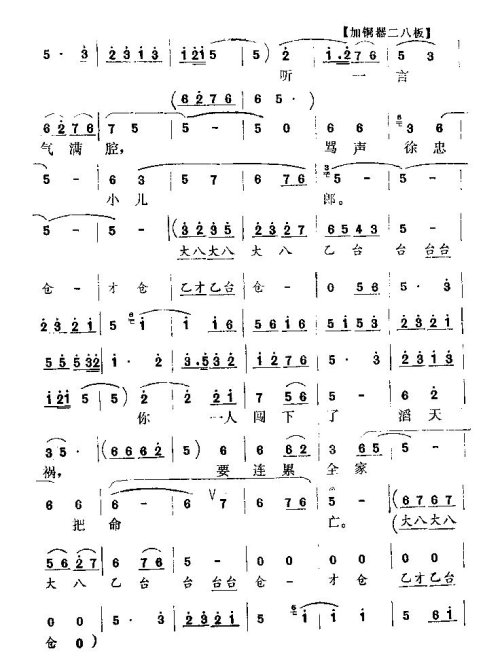 【加铜器二八板】
5· 3̇ | 2̇ 3̇ 1̇ 3̇ | 1̇ 2̇ 1̇ 5 | 5) 2̇ | 1̇·2̇ 7 6 | 5 3
听 一 言
(6 2̇ 7 6 | 6 5·)
6 2̇ 7 6 | 7 5 | 5 - | 5 0 | 6 - | 3 6
气 满 腔， 骂 声 徐 忠
5 - | 6 3 | 5 7 | 6 7 6 | 5 - | 5 -
小 儿 郎。
5 - | 5 - | (3̇ 2̇ 3̇ 5̇ | 2̇ 3̇ 2̇ 7 | 6 5 4 3 | 5 -
大八大八 大 八 乙 台 台 台台
仓 - 才 仓 乙才乙台 仓 - 0 5 6 | 5· 3̇
2̇ 3̇ 2̇ 1̇ | 5 1̇ | 1̇ 1̇ 6 | 5 6 1̇ 6 | 5 1̇ 5 3 | 2̇ 3̇ 2̇ 1̇
5 5 5 3̇ 2̇ | 1̇· 2̇ | 3̇·5̇ 3̇ 2̇ | 1̇ 2̇ 7 6 | 5· 3̇ | 2̇ 3̇ 1̇ 3̇
1̇ 2̇ 1̇ 5 | 5) 2̇ | 2̇ 2̇ 1̇ | 7 5 6 | 5 - | 6 2̇
你 一 人 闯 下 了 滔 天
3 5· | (6 6 6 2̇ | 5) 6 | 6 6 2 | 3 6 5 | 5 -
祸， 要 连 累 全 家
6 6 | 6 - | 6 7 | 6 7 6 | 5 - | (6 7 6 7
把 命 亡。 (大八大八
5 6 2̇ 7 | 6 7 6 | 5 - | 0 0 | 0 0 | 0 0
大 八 乙 台 台 台台 仓 - 才 仓 乙才乙台
0 0 | 5· 3̇ | 2̇ 3̇ 2̇ 1̇ | 5 1̇ | 1̇ 1̇ | 5 6 1̇
仓 0)